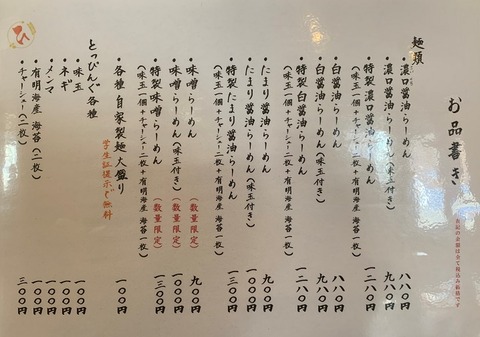 お品書き
表記の金額は全て税込み価格です
麺類
・濃口醤油らーめん 八八〇円
・濃口醤油らーめん(味玉付き) 九八〇円
・特製濃口醤油らーめん 一二八〇円
(味玉一個+チャーシュー二枚+有明海産 海苔一枚)
・白醤油らーめん 八八〇円
・白醤油らーめん(味玉付き) 九八〇円
・特製白醤油らーめん 一二八〇円
(味玉一個+チャーシュー二枚+有明海産 海苔一枚)
・たまり醤油らーめん 九〇〇円
・たまり醤油らーめん(味玉付き) 一〇〇〇円
・特製たまり醤油らーめん 一三〇〇円
(味玉一個+チャーシュー二枚+有明海産 海苔一枚)
・味噌らーめん(数量限定) 九〇〇円
・味噌らーめん(味玉付き)(数量限定) 一〇〇〇円
・特製味噌らーめん(数量限定) 一三〇〇円
(味玉一個+チャーシュー二枚+有明海産 海苔一枚)
・各種 自家製麺大盛り 一〇〇円
学生証提示で無料
とっぴんぐ各種
・味玉 一〇〇円
・ネギ 一〇〇円
・メンマ 一〇〇円
・有明海産 海苔(二枚) 一〇〇円
・チャーシュー(二枚) 三〇〇円